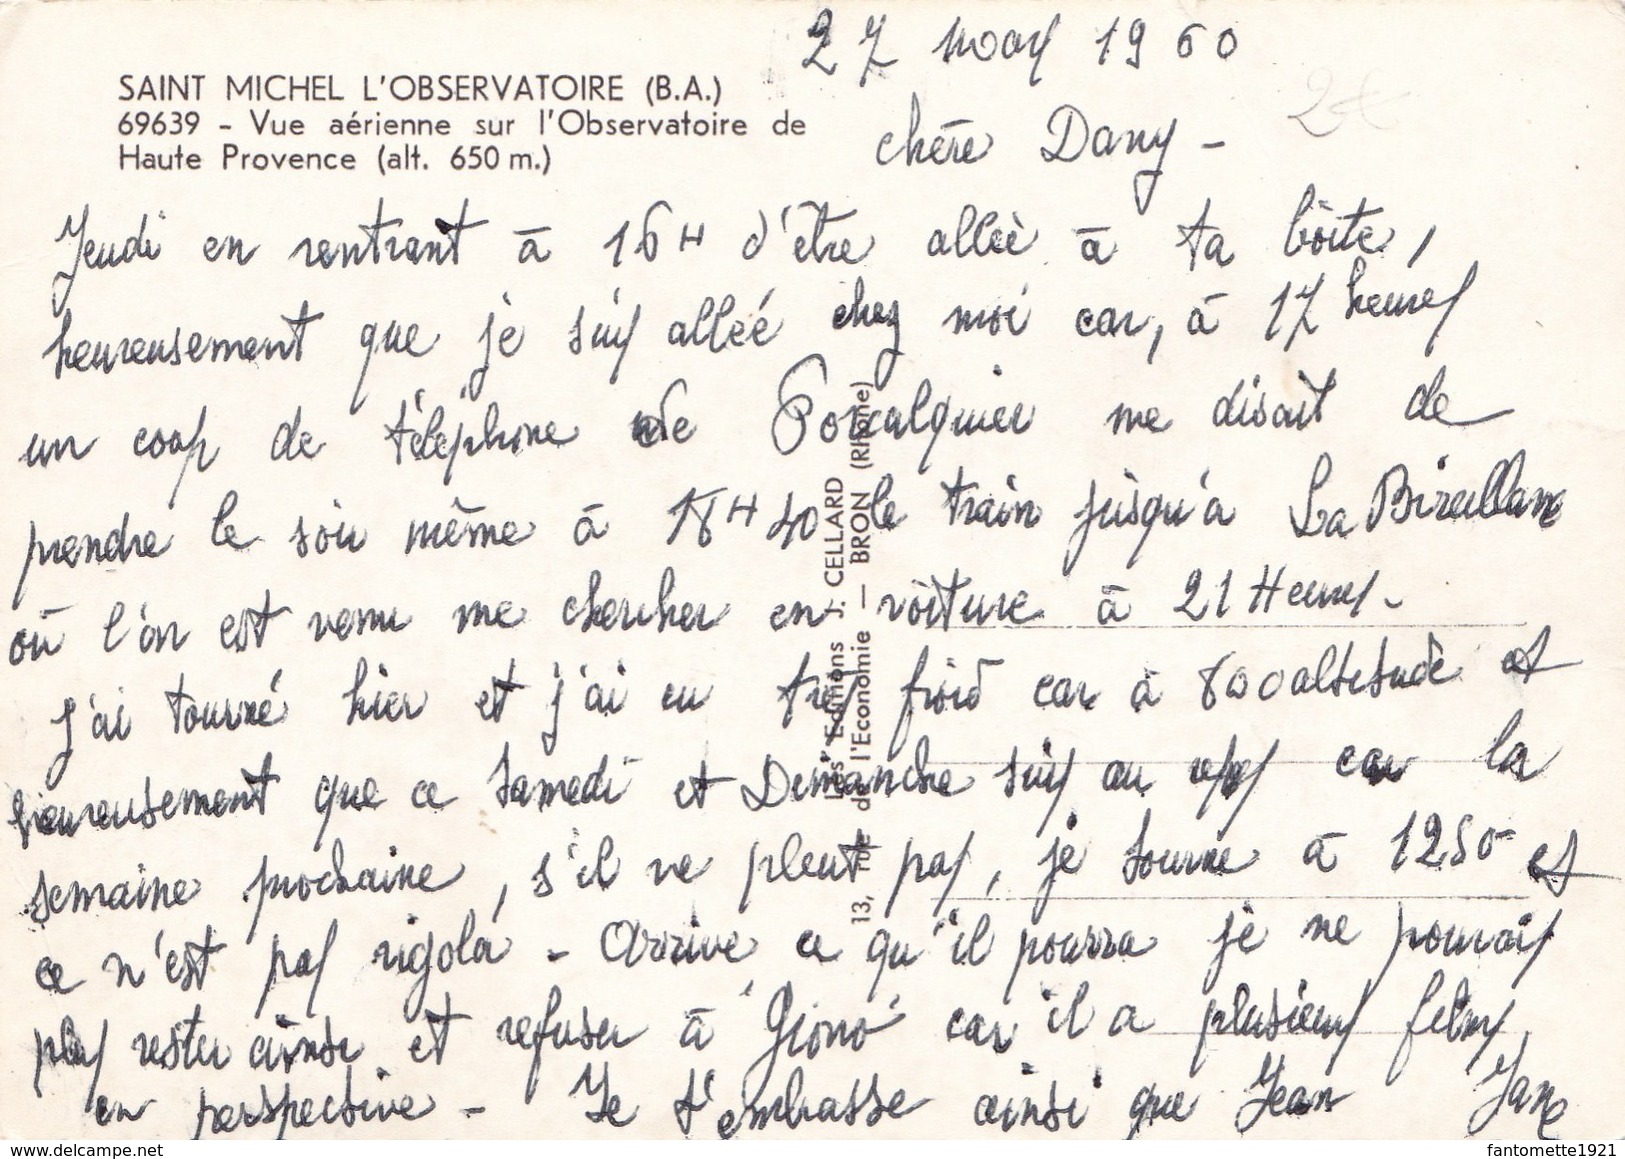 27 nov 1960
SAINT MICHEL L'OBSERVATOIRE (B.A.)
69639 - Vue aérienne sur l'Observatoire de
Haute Provence (alt. 650 m.)
chère Dany -
Jeudi en rentrant à 16H d'être alleé à ta boîte,
heureusement que je suis alleé chez moi car, à 17 heures
un coup de téléphone de Forcalquier me disait de
prendre le soir même à 18H40 le train jusqu'à La
où l'on est venu me chercher en voiture à 21 Heures -
J'ai tourné hier et j'ai eu très froid car à 800 altitude et
heureusement que ce Samedi et Dimanche suis au car la
semaine prochaine, s'il ne pleut pas, je tourne à 1250 et
ce n'est pas rigolo - Arrive ce qu'il pourra je ne pouvais
plus rester ainsi et refuser à Giono car il a plusieurs films
en perspective - Je t'embrasse ainsi que Jean Jane
Les Editions J. CELLARD
13, rue de l'Economie — BRON (Rhône)
fantomette1921